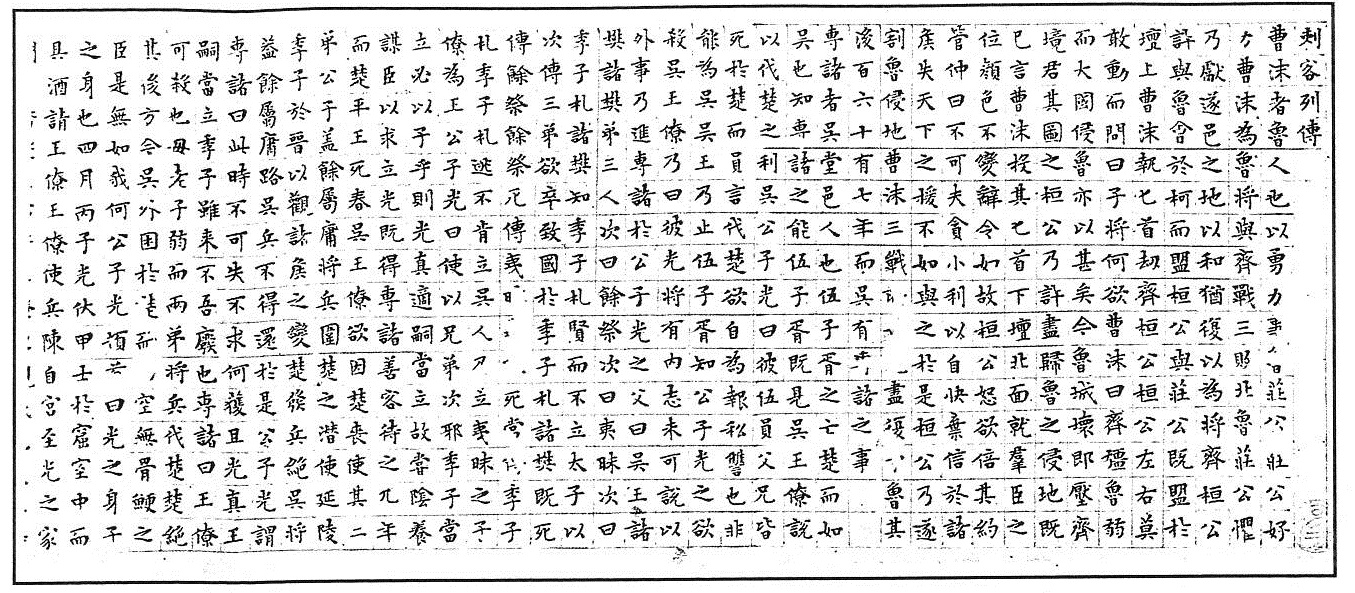 刺客列傳
曹沫者魯人也以勇力事莊公莊公好
力曹沫為魯將與齊戰三敗北魯莊公懼
乃獻遂邑之地以和猶復以為將齊桓公
許與魯會於柯而盟桓公與莊公既盟於
壇上曹沫執匕首刼齊桓公桓公左右莫
敢動而問曰子將何欲曹沫曰齊彊魯弱
而大國侵魯亦以甚矣今魯城壞即壓齊
境君其圖之桓公乃許盡歸魯之侵地既
已言曹沫投其匕首下壇北面就羣臣之
位顏色不變辭令如故桓公怒欲倍其約
管仲曰不可夫貪小利以自快棄信於諸
矦失天下之援不如與之於是桓公乃遂
割魯侵地曹沫三戰盡復魯其
後百六十有七年而吳有諸之事
專諸者吳堂邑人也伍子胥之亡楚而如
吳也知專諸之能伍子胥既見吳王僚說
以伐楚之利吳公子光曰彼伍員父兄皆
死於楚而員言伐楚欲自為報私讐也非
能為吳吳王乃止伍子胥知公子光之欲
殺吳王僚乃曰彼光將有內志未可說以
外事乃進專諸於公子光之父曰吳王諸
樊諸樊弟三人次曰餘祭次曰夷眛次曰
季子札諸樊知季子札賢而不立太子以
次傳三弟欲卒致國於季子札諸樊既死
傳餘祭餘祭死傳夷死當季子
札季子札逃不肯立吳人乃立夷眛之子
僚為王公子光曰使以兄弟次邪季子當
立必以子乎則光真適嗣當立故當陰養
謀臣以求立光既得專諸善客待之九年
而楚平王死春吳王僚欲因楚喪使其二
弟公子蓋餘屬庸將兵圍楚之潛使延陵
季子於晉以觀諸矦之變楚發兵絕吳將
益餘屬庸路吳兵不得還於是公子光謂
專諸曰此時不可失不求何獲且光真王
嗣當立季子雖来不吾廢也專諸曰王僚
可殺也母老子弱而兩弟將兵伐楚楚絕
其後方今吳外困於楚而空無骨鯁之
臣是無如我何公子光頓首曰光之身子
之身也四月丙子光伏甲士於窟室中而
具酒請王僚王僚使兵陳自宮至光之家